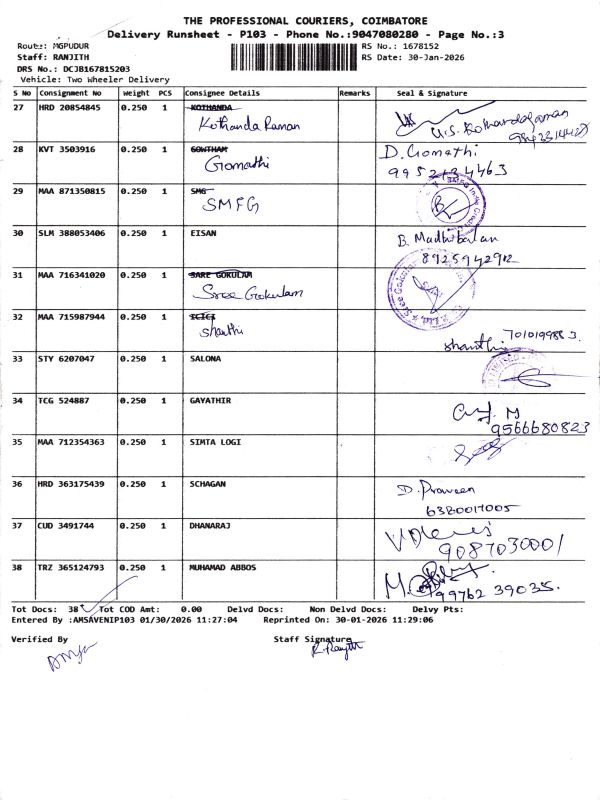 THE PROFESSIONAL COURIERS, COIMBATORE
Delivery Runsheet - P103 - Phone No.:9047080280 - Page No.:3
Route: MGPUDUR
RS No.: 1678152
Staff: RANJITH
RS Date: 30-Jan-2026
DRS No.: DCJB167815203
Vehicle: Two Wheeler Delivery
S No Consignment No Weight PCS Consignee Details Remarks Seal & Signature
27 HRD 20854845 0.250 1 KOTHANDA
Kothanda Raman
28 KVT 3503916 0.250 1 GOWTHAM D. Gomathi
Gomathi 9952134463
29 MAA 871350815 0.250 1 SMG
SMFG
30 SLM 388053406 0.250 1 EISAN B. Madhibalan
8925942912
31 MAA 716341020 0.250 1 SARE GOKULAM
Sree Gokulam
32 MAA 715987944 0.250 1 ICICI
shanthi
shanthi
33 STY 6207047 0.250 1 SALONA
34 TCG 524887 0.250 1 GAYATHIR
9566680823
35 MAA 712354363 0.250 1 SIMTA LOGI
36 HRD 363175439 0.250 1 SCHAGAN D. Praveen
6380017005
37 CUD 3491744 0.250 1 DHANARAJ
9087030001
38 TRZ 365124793 0.250 1 MUHAMAD ABBOS
99762 39035.
Tot Docs: 38 Tot COD Amt: 0.00 Delvd Docs: Non Delvd Docs: Delvy Pts:
Entered By :AMSAVENIP103 01/30/2026 11:27:04 Reprinted On: 30-01-2026 11:29:06
Verified By Staff Signature
R. Ranjith